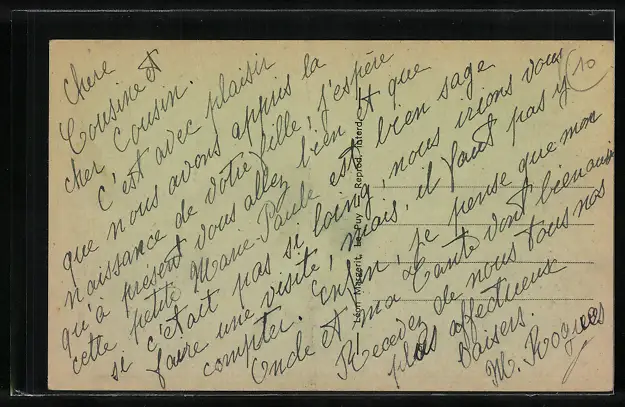 Chere
Cousine et
cher Cousin.
C'est avec plaisir
que nous avons appris la
naissance de votre fille, j'espère
qu'à présent vous allez bien et que
cette petite Marie-Paule est bien sage
si c'était pas si loing, nous irions vous
faire une visite, mais, il faut pas y
compter. Enfin, je pense que mon
Oncle et ma Tante vont bien aussi
Recevez de nous tous nos
plus affectueux
baisers.
M. Rogues
10
Léon Margerit, Le Puy Reprod. interd.